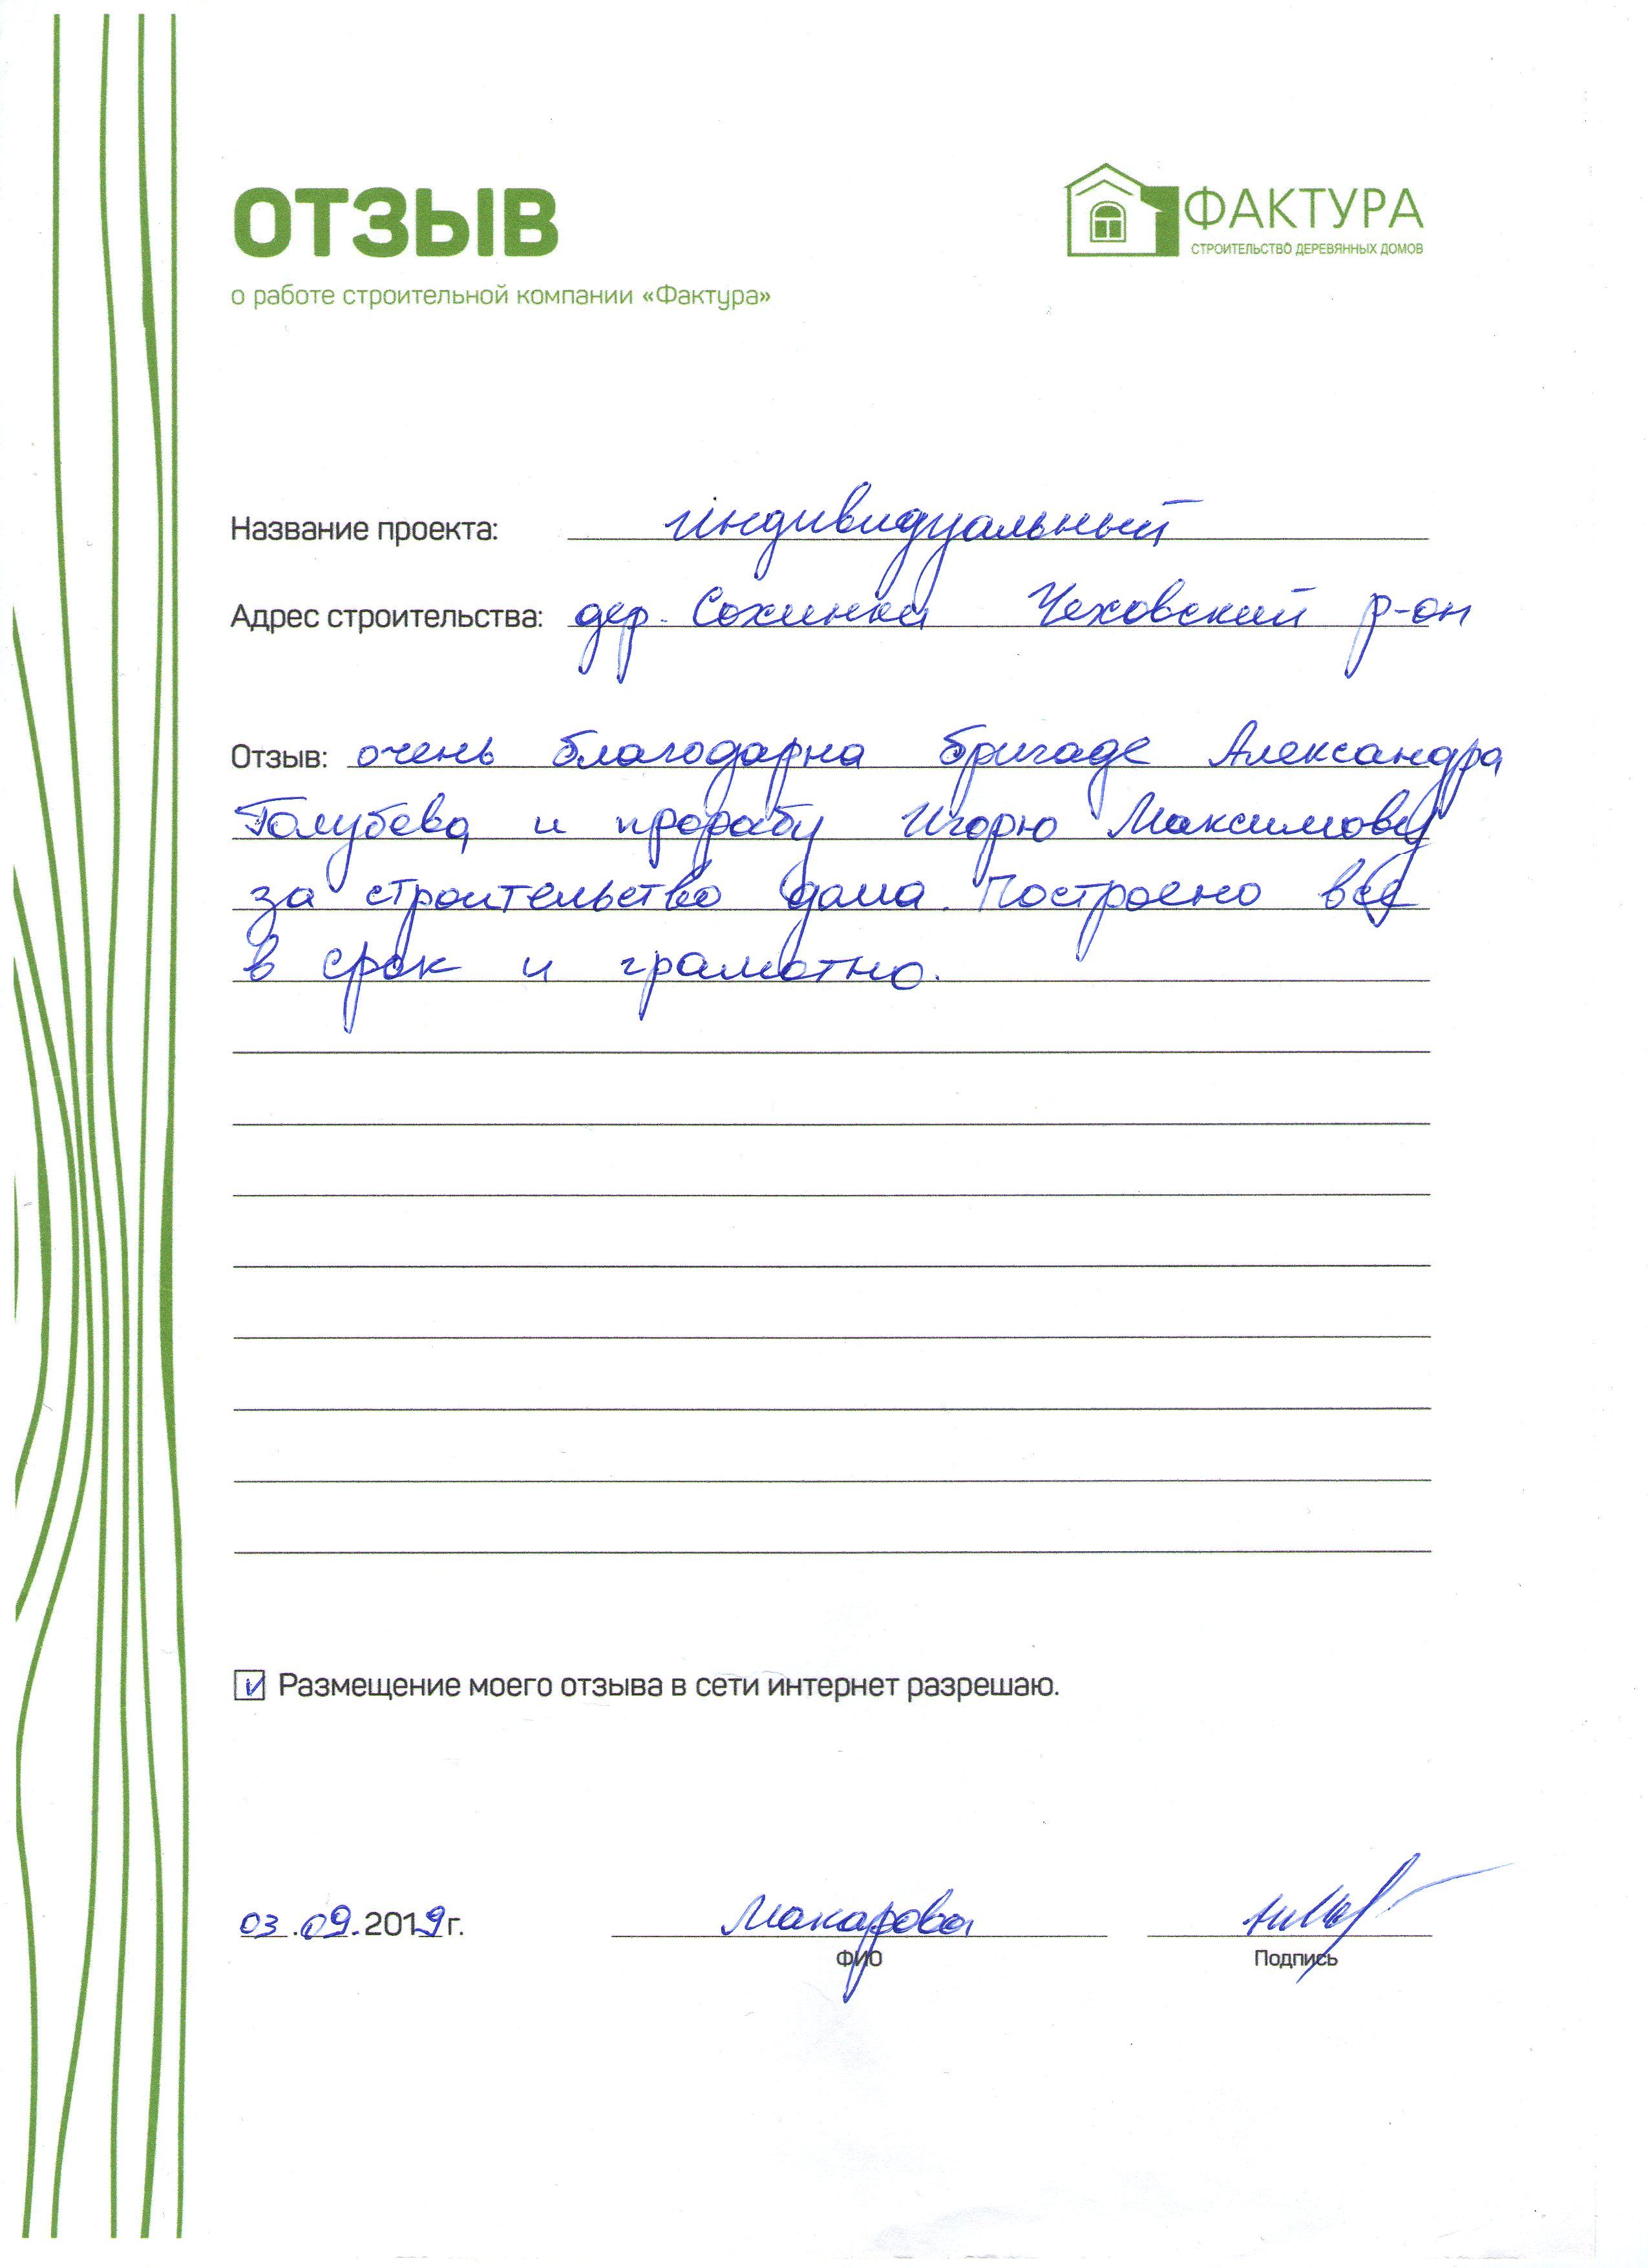 ОТЗЫВ
ФАКТУРА
СТРОИТЕЛЬСТВО ДЕРЕВЯННЫХ ДОМОВ
о работе строительной компании «Фактура»
Название проекта: индивидуальный
Адрес строительства: дер. Сохинки Чеховский р-он
Отзыв: очень благодарна бригаде Александра
Голубева и прорабу Игорю Максимову
за строительство дома. Построено все
в срок и грамотно.
Размещение моего отзыва в сети интернет разрешаю.
03.09.2019г. Макарова
ФИО Подпись